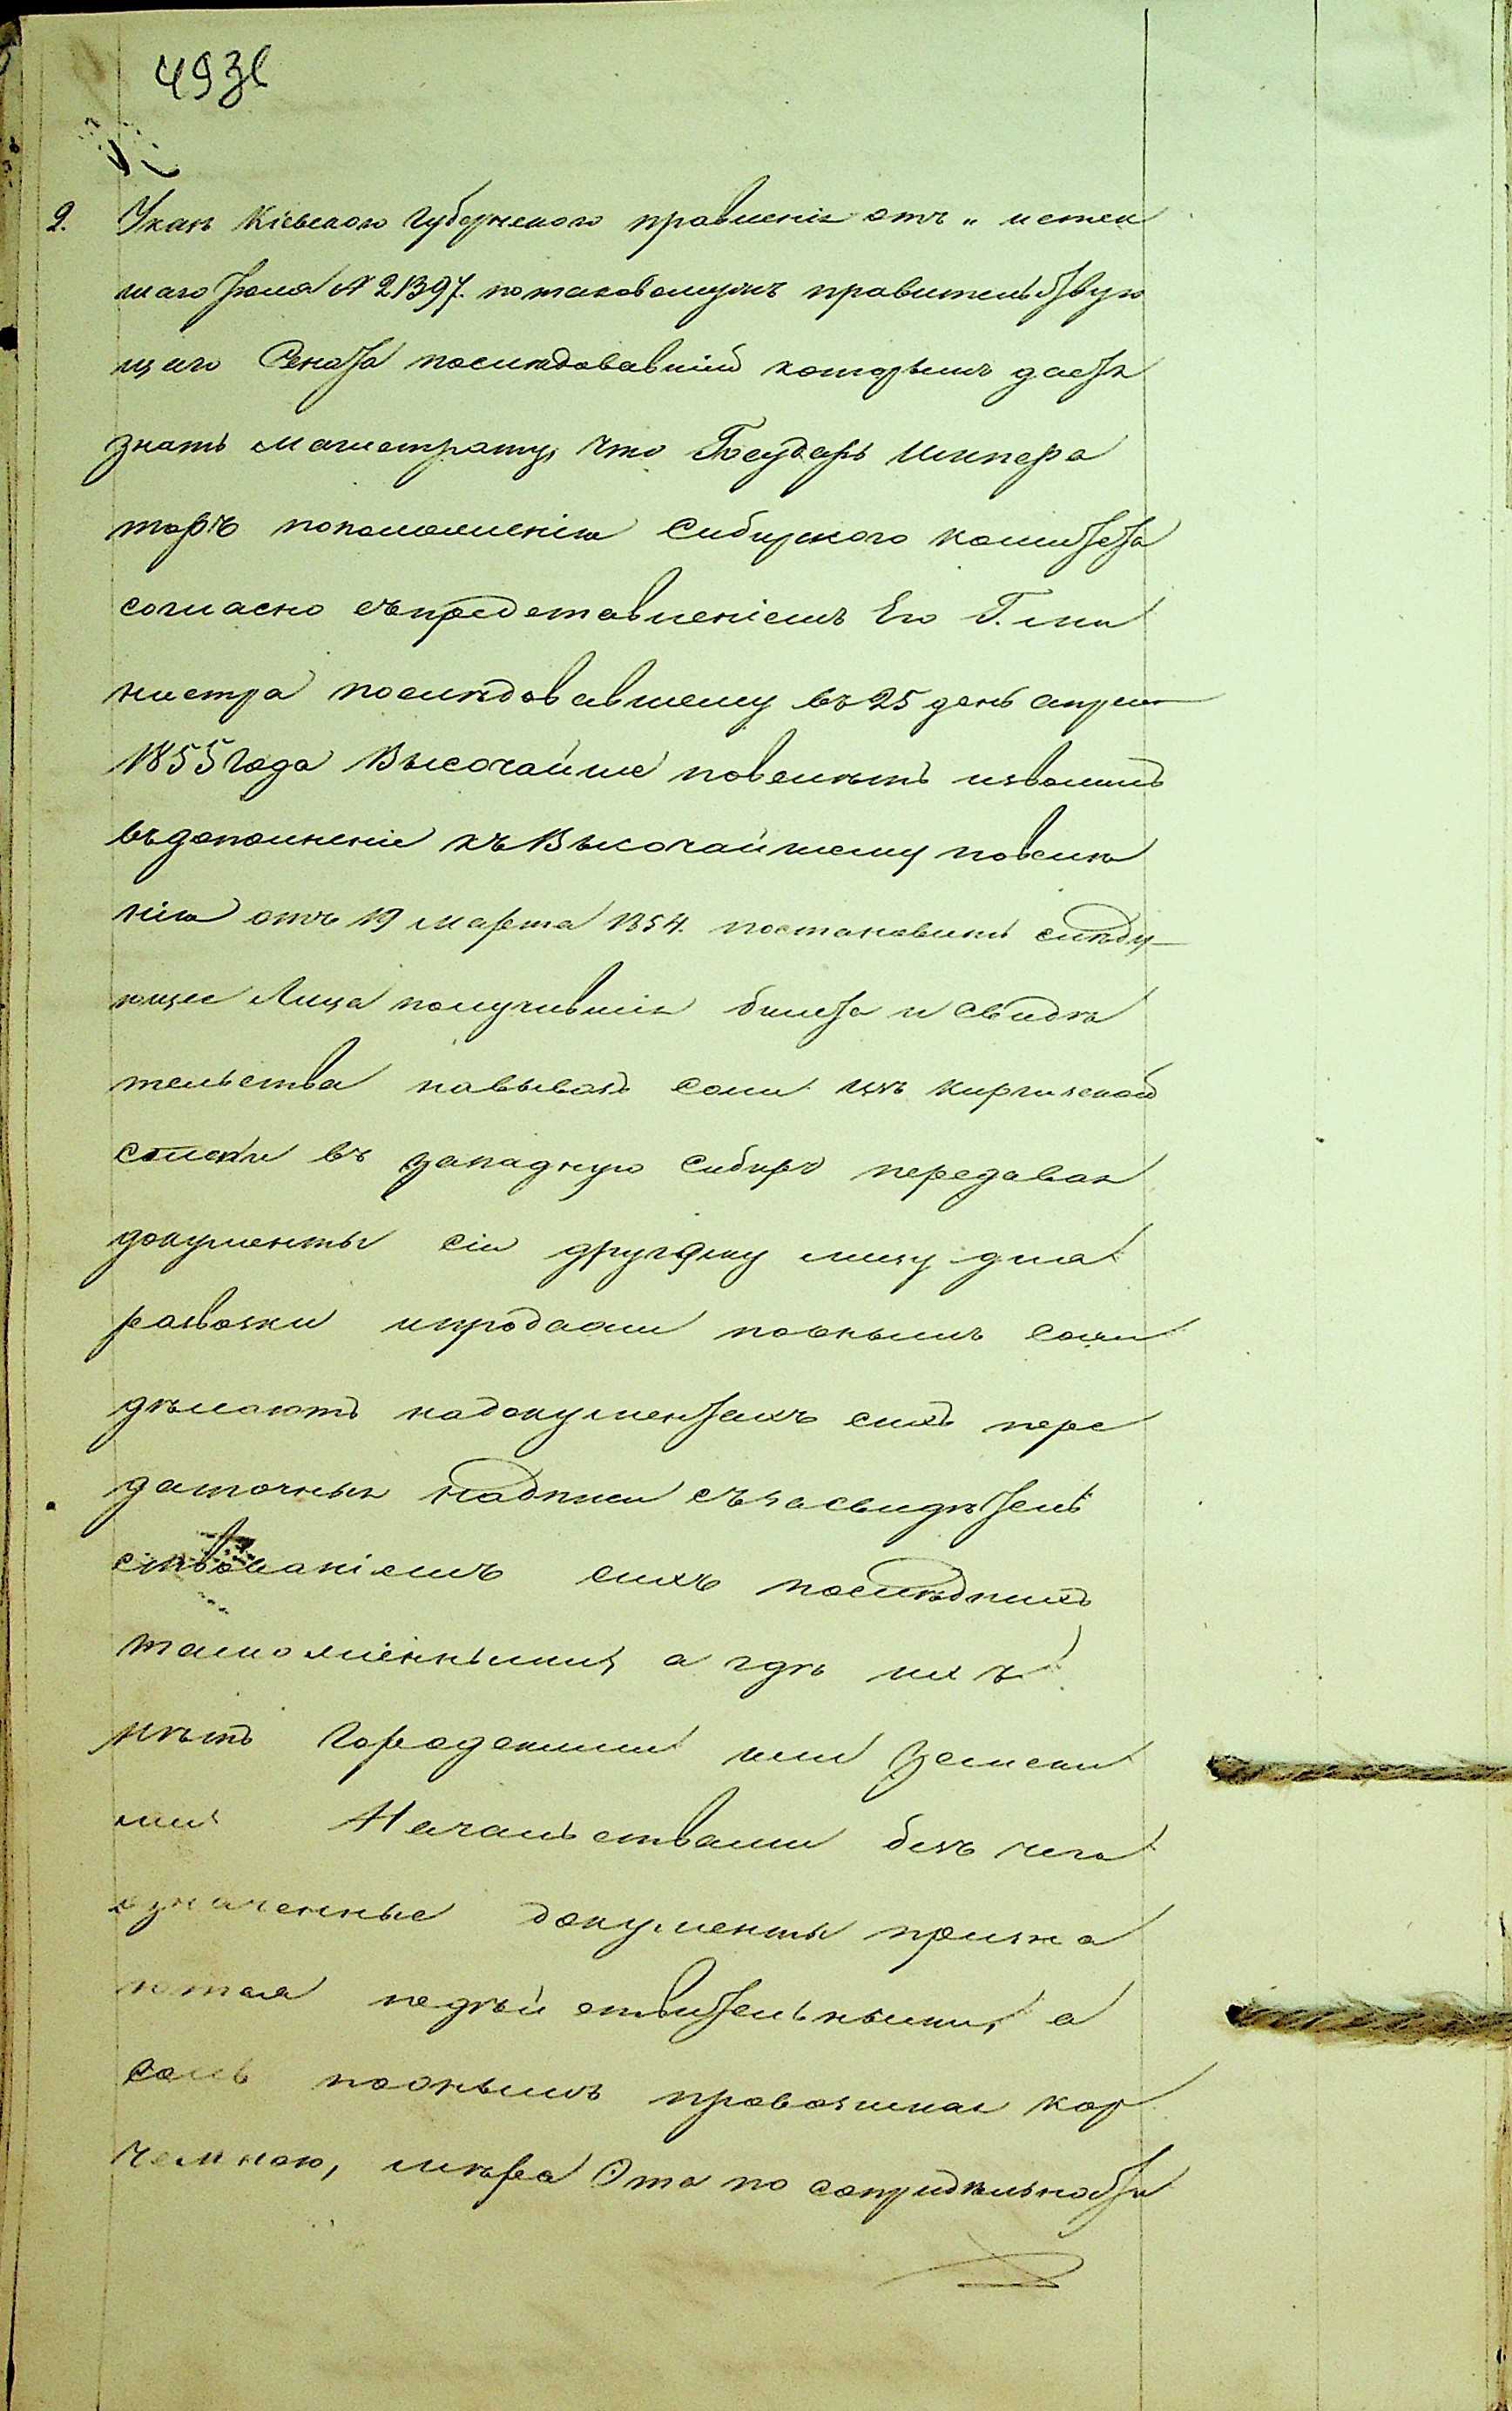 493
2. Указъ Кіевскаго Губернскаго правленія отъ „ истек
шаго Іюля № 21397. по таковомужъ правительствую
щаго Сената последовавшій которымъ даетъ
знать магистрату, что Государь Импера
торъ по положенію Сибирскаго комитета
согласно съ представленіемъ Его Г. ми
нистра последовавшему въ 25 день апреля
1855 года Высочайше повелѣть изволилъ
въ дополненіе къ Высочайшему повелѣ
нію отъ 19 марта 1854. постановить слѣду
ющее Лица получившія билета и свидѣ
тельства на вывозъ соли изъ киргизской
степи въ западную Сибирь передавая
документы сіи другому лицу для
развозки и продажи по онымъ соли
дѣлаютъ на документахъ сихъ пере
даточныя надписи съ засвидѣтель
ствованіемъ сихъ послѣднихъ
таможенными, а гдѣ ихъ
нѣтъ Городскими или земски
ми Начальствами безъ чего
означенные документы призна
ются недѣйствительными, а
соль по онымъ провозимая кор
чемною, мѣра Эта по соприделъности